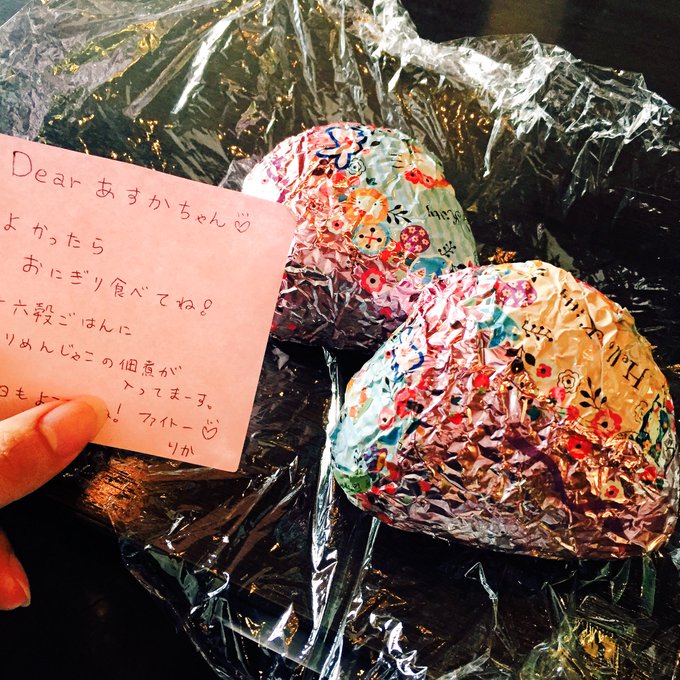 Dear あすかちゃん♡
よかったら
おにぎり食べてね!
六穀ごはんに
りめんじゃこの佃煮が
入ってまーす。
日もよ ね! ファイトー♡
りか
Hello